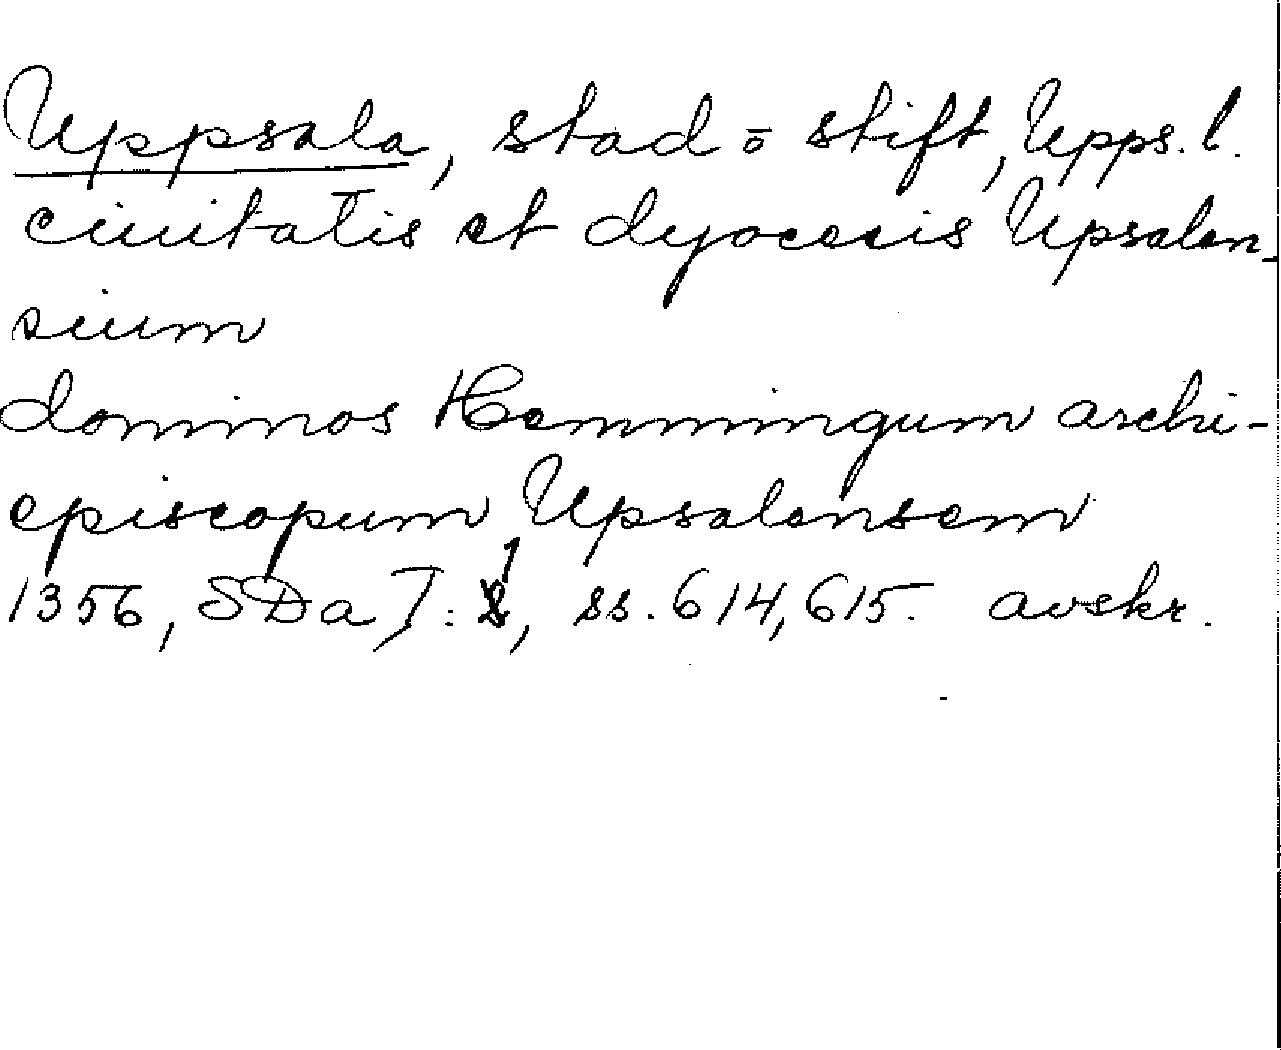 Uppsala, stad o stift, Upps. l.
ciuitatis et dyocesis Upsalen-
sium
dominos Hemmingum archi-
episcopum Upsalensem
1356, SDa I: 1, ss. 614, 615. avskr.